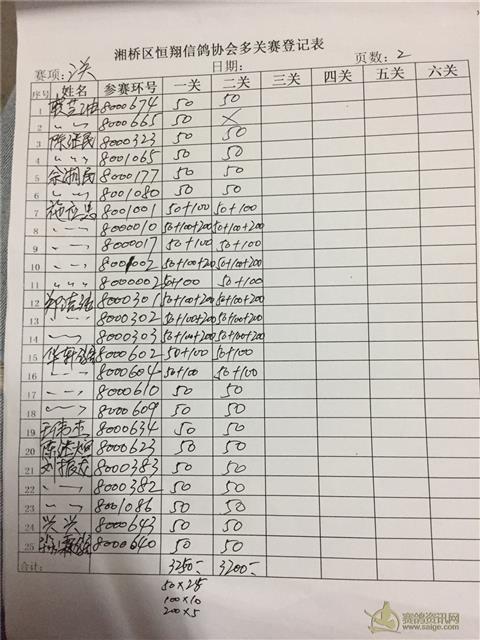 湘桥区恒翔信鸽协会多关赛登记表
赛项: 2关 日期: 页数: 2
序号 姓名 参赛环号 一关 二关 三关 四关 五关 六关
1 8000674 50 50
2 〃 〃 8000665 50 ×
3 8000323 50 50
4 〃 〃 8001065 50 50
5 8000177 50 50
6 〃 〃 8001080 50 50
7 8001001 50+100 50+100
8 8000010 50+100+200 50+100+200
9 8000017 50+100 50+100
10 8001002 50+100+200 50+100+200
11 8000002 50+100 50+100
12 8000301 50+100+200 50+100+200
13 8000302 50+100+200 50+100+200
14 8000303 50+100+200 50+100+200
15 8000602 50+100 50+100
16 8000604 50+100 50+100
17 8000610 50 50
18 8000609 50 50
19 8000634 50 50
20 8000623 50 50
21 8000383 50 50
22 8000382 50 50
23 8001086 50 50
24 兴兴 8000643 50 50
25 8000640 50 50
合计: 3250- 3200-
50×25
100×10
200×5
赛鸽资讯网
www.saige.com